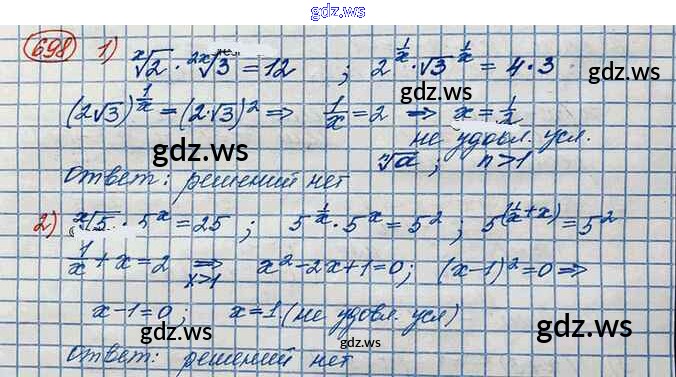 gdz.ws
698 1) ˣ√2 · ²ˣ√3 = 12 ; 2^(1/x) · √3^(1/x) = 4·3
(2√3)^(1/x) = (2·√3)² ⇒ 1/x = 2 ⇒ x = 1/2
gdz.ws
не удовл. усл.
gdz.ws
ⁿ√a ; n>1
gdz.ws
Ответ: решений нет
2) ˣ√5 · 5ˣ = 25 ; 5^(1/x) · 5ˣ = 5² ; 5^(1/x + x) = 5²
1/x + x = 2 ⇒ x>1 x² - 2x + 1 = 0 ; (x-1)² = 0 ⇒
x - 1 = 0 ; x = 1 (не удовл. усл)
gdz.ws gdz.ws
gdz.ws
Ответ: решений нет
gdz.ws